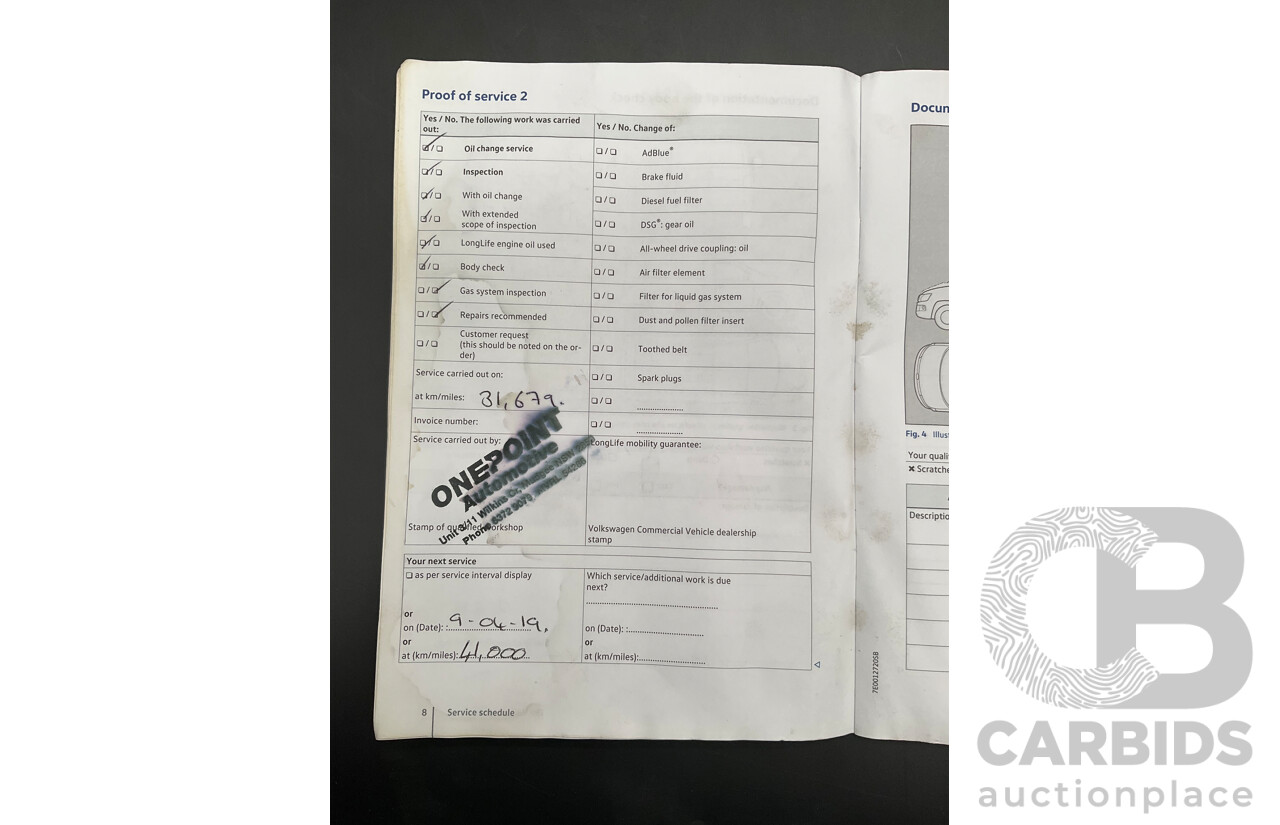 Proof of service 2
Yes / No. The following work was carried
out:
Yes / No. Change of:
❑ / ❑ Oil change service
❑ / ❑ AdBlue®
❑ / ❑ Inspection
❑ / ❑ Brake fluid
❑ / ❑ With oil change
❑ / ❑ Diesel fuel filter
❑ / ❑ With extended
scope of inspection
❑ / ❑ DSG®: gear oil
❑ / ❑ LongLife engine oil used
❑ / ❑ All-wheel drive coupling: oil
❑ / ❑ Body check
❑ / ❑ Air filter element
❑ / ❑ Gas system inspection
❑ / ❑ Filter for liquid gas system
❑ / ❑ Repairs recommended
❑ / ❑ Dust and pollen filter insert
❑ / ❑ Customer request
(this should be noted on the or-
der)
❑ / ❑ Toothed belt
Service carried out on:
❑ / ❑ Spark plugs
at km/miles: 31,679.
❑ / ❑ ......................
Invoice number:
❑ / ❑ ......................
Service carried out by:
LongLife mobility guarantee:
ONEPOINT
Automotive
Unit 3/11 Wilkins Cr,
Phone 6372 9070
Stamp of qualified workshop
Volkswagen Commercial Vehicle dealership
stamp
Your next service
❑ as per service interval display
Which service/additional work is due
next?
or
on (Date): 9-04-19.
on (Date): :
or
or
at (km/miles): 41,000
at (km/miles):
8 Service schedule
7E0012720SB
Docum
Fig. 4 Illust
Your quali
✖ Scratche
Descriptio
CB
CARBIDS
auctionplace